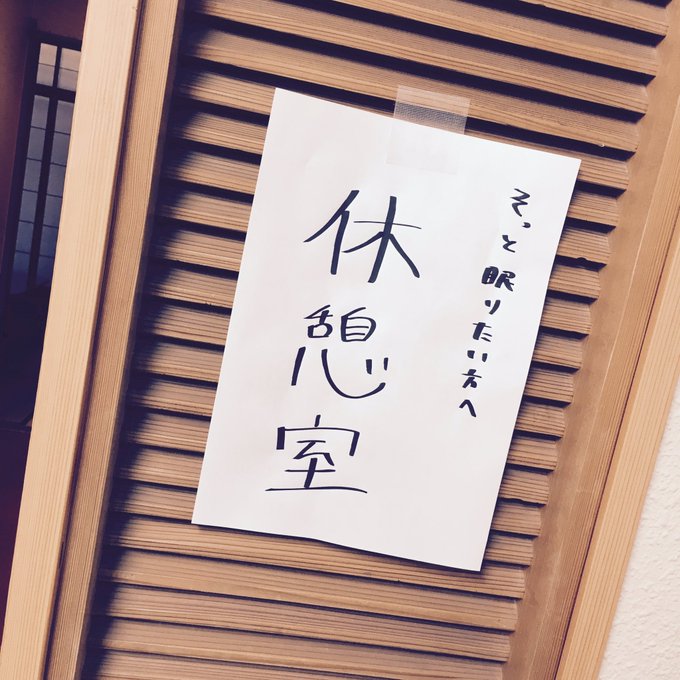 そっと眠りたい方へ
休憩室